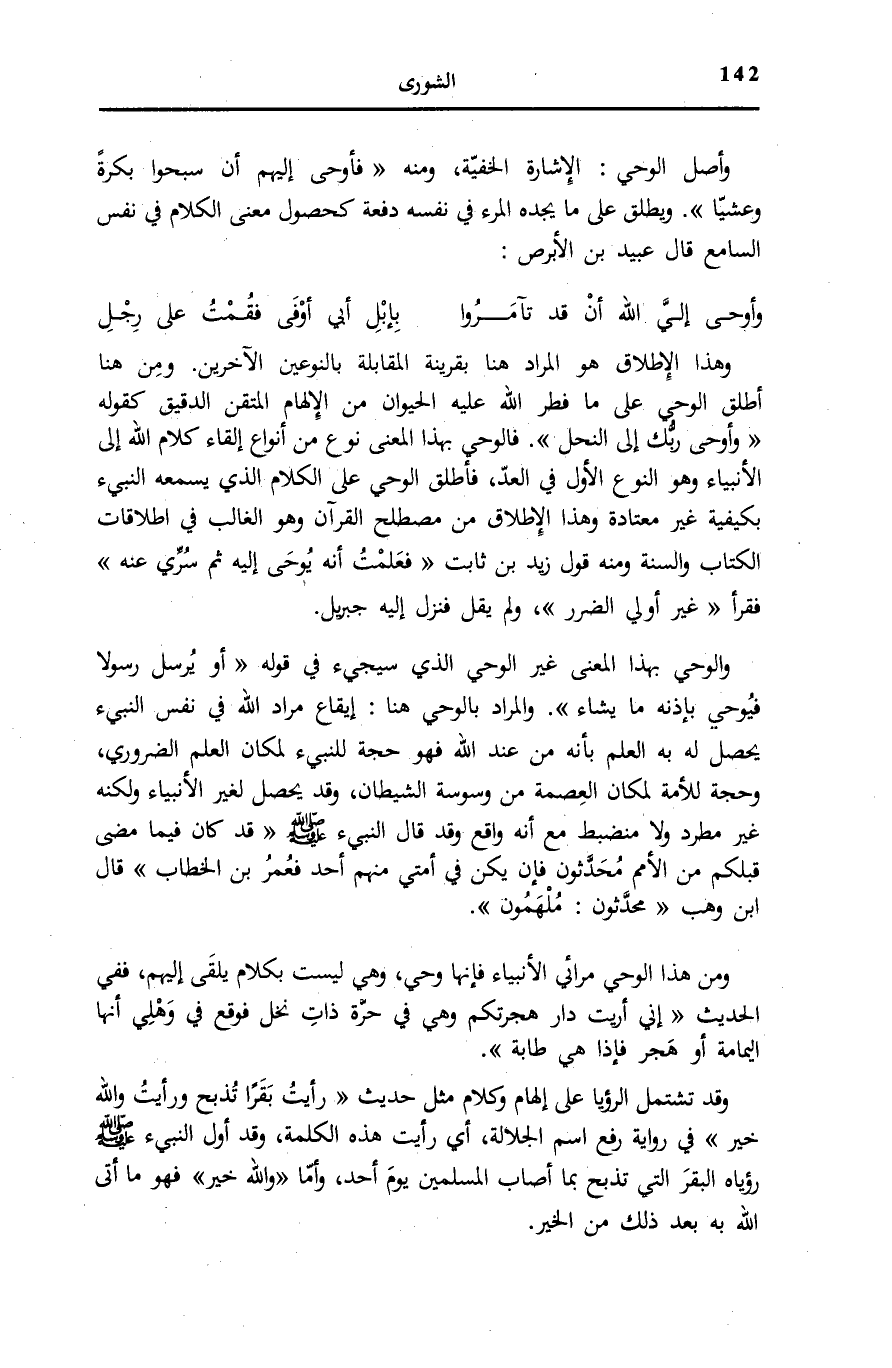 142
الشورى
وأصل الوحي : الإشارة الخفيّة، ومنه « فأوحى إليهم أن سبحوا بكرةً
وعشيّا ». ويطلق على ما يجده المرء في نفسه دفعة كحصول معنى الكلام في نفس
السامع قال عبيد بن الأبرص :
وأوحــى إلـيَّ الله أنْ قد تآمَــــرُوا بِإبْلِ أبي أوْفَى فقُــمْتُ على رِجْـلِ
وهذا الإطلاق هو المراد هنا بقرينة المقابلة بالنوعين الآخرين. ومِن هنا
أطلق الوحي على ما فطر الله عليه الحيوان من الإلهام المتقن الدقيق كقوله
« وأوحى ربُّك إلى النحل ». فالوحي بهذا المعنى نوع من أنواع إلقاء كلام الله إلى
الأنبياء وهو النوع الأول في العدّ، فأطلق الوحي على الكلام الذي يسمعه النبيء
بكيفية غير معتادة وهذا الإطلاق من مصطلح القرآن وهو الغالب في اطلاقات
الكتاب والسنة ومنه قول زيد بن ثابت « فعَلمْتُ أنه يُوحَى إليه ثم سُرِّي عنه »
فقرأ « غير أولي الضرر »، ولم يقل فنزل إليه جبريل.
والوحي بهذا المعنى غير الوحي الذي سيجيء في قوله « أو يُرسل رسولا
فيُوحي بإذنه ما يشاء ». والمراد بالوحي هنا : إيقاع مراد الله في نفس النبيء
يحصل له به العلم بأنه من عند الله فهو حجة للنبيء لمكان العلم الضروري،
وحجة للأمة لمكان العِصمة من وسوسة الشيطان، وقد يحصل لغير الأنبياء ولكنه
غير مطرد ولا منضبط مع أنه واقع وقد قال النبيء ﷺ « قد كان فيما مضى
قبلكم من الأمم مُحَدَّثون فإن يكن في أمتي منهم أحد فعُمرُ بن الخطاب » قال
ابن وهب « محدَّثون : مُلْهَمُون ».
ومن هذا الوحي مرائي الأنبياء فإنها وحي، وهي ليست بكلام يلقَى إليهم، ففي
الحديث « إني أريت دار هجرتكم وهي في حرّة ذاتِ نخل فوقع في وَهْلِي أنها
اليمامة أو هَجر فإذا هي طابة ».
وقد تشتمل الرؤيا على إلهام وكلام مثل حديث « رأيتُ بَقَرًا تُذبح ورأيتُ والله
خير » في رواية رفع اسم الجلالة، أي رأيت هذه الكلمة، وقد أول النبيء ﷺ
رؤياه البقرَ التي تذبح بما أصاب المسلمين يومَ أحد، وأمّا «والله خير» فهو ما أتى
الله به بعد ذلك من الخير.